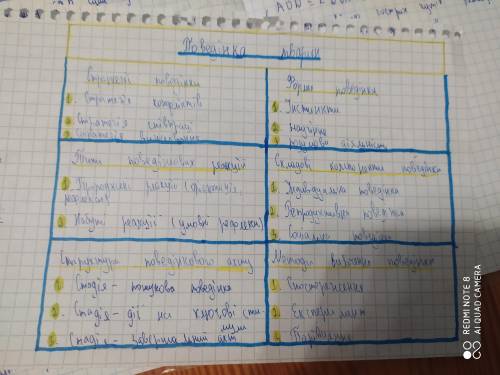 Поведінка тварин
Стратегії поведінки
1. Стратегія конфліктів
2. Стратегія співпраці
3. Стратегія виживання
Форми поведінки
1. Інстинкти
2. Научіння
3. Розумова діяльність
Типи поведінкових реакцій
1. Природжені реакції (
рефлекси)
2. Набуті реакції (умовні рефлекси)
Складові компоненти поведінки
1. Індивідуальна поведінка
2. Репродуктивна поведінка
3. Соціальна поведінка
Структура поведінкового акту
1. Стадія - пошукова поведінка
2. Стадія - дії на ключові сти-
мули
3. Стадія - завершальний акт
Методи вивчення поведінки
1. Спостереження
2. Експеримент
3. Порівняння
REDMI NOTE 8
AI QUAD CAMERA